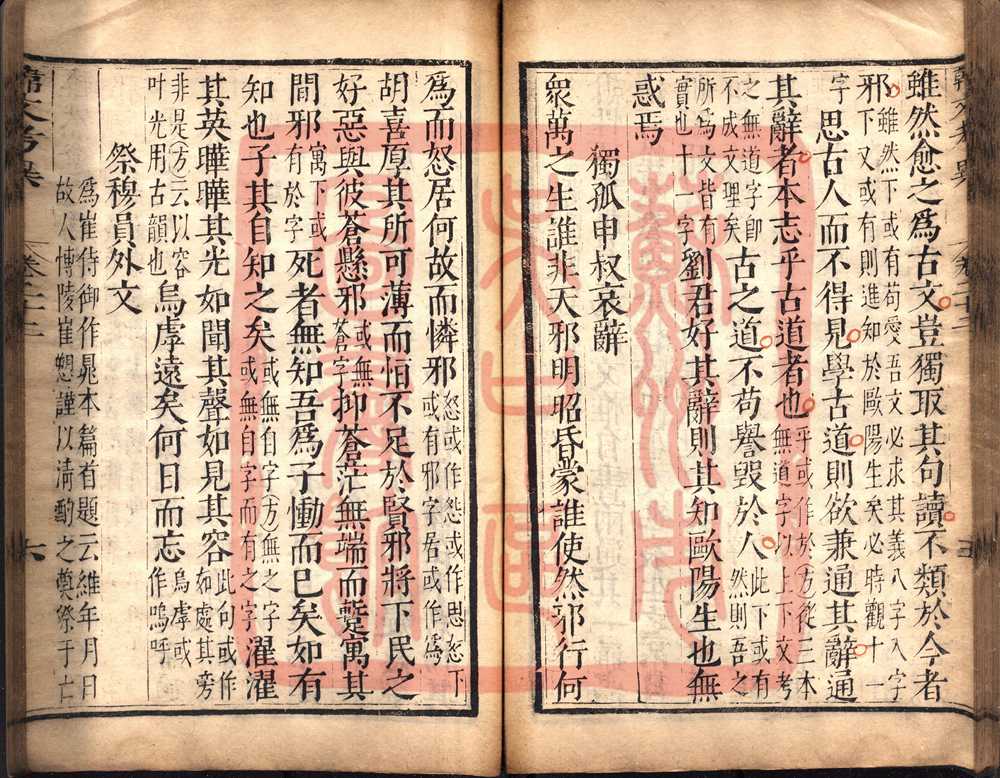 雖然愈之爲古文豈獨取其句讀不類於今者
邪雖然下或有苟愛吾文必求其義八字入字邪下又或有則進知於歐陽生矣必時觀十一
字思古人而不得見學古道則欲兼通其辭通
其辭者本志乎古道者也乎或作於方從三本無道字以上下文考
之無道字即不成文理矣古之道不苟譽毀於人此下或有然則吾之
所爲文皆有實也十一字劉君好其辭則其知歐陽生也無
惑焉
獨孤申叔哀辭
衆萬之生誰非天邪明昭昏蒙誰使然邪行何
爲而怒居何故而憐邪怒或作怨或作思怒下或有邪字居或作爲
胡喜厚其所可薄而恒不足於賢邪將下民之
好惡與彼蒼懸邪或無蒼字抑蒼茫無端而蹔寓其
間邪寓下或有於字死者無知吾爲子慟而已矣如有
知也子其自知之矣或無自字方無之字或無自字而有之字濯濯
其英曄曄其光如聞其聲如見其容此句或作如處其旁
非是方云以容叶光用古韻也烏虖遠矣何日而忘烏虖或作嗚呼
祭穆員外文
爲崔侍御作晁本篇首題云維年月日
故人博陵崔愬謹以清酌之奠祭于亡
韓文考異
卷二十二
六